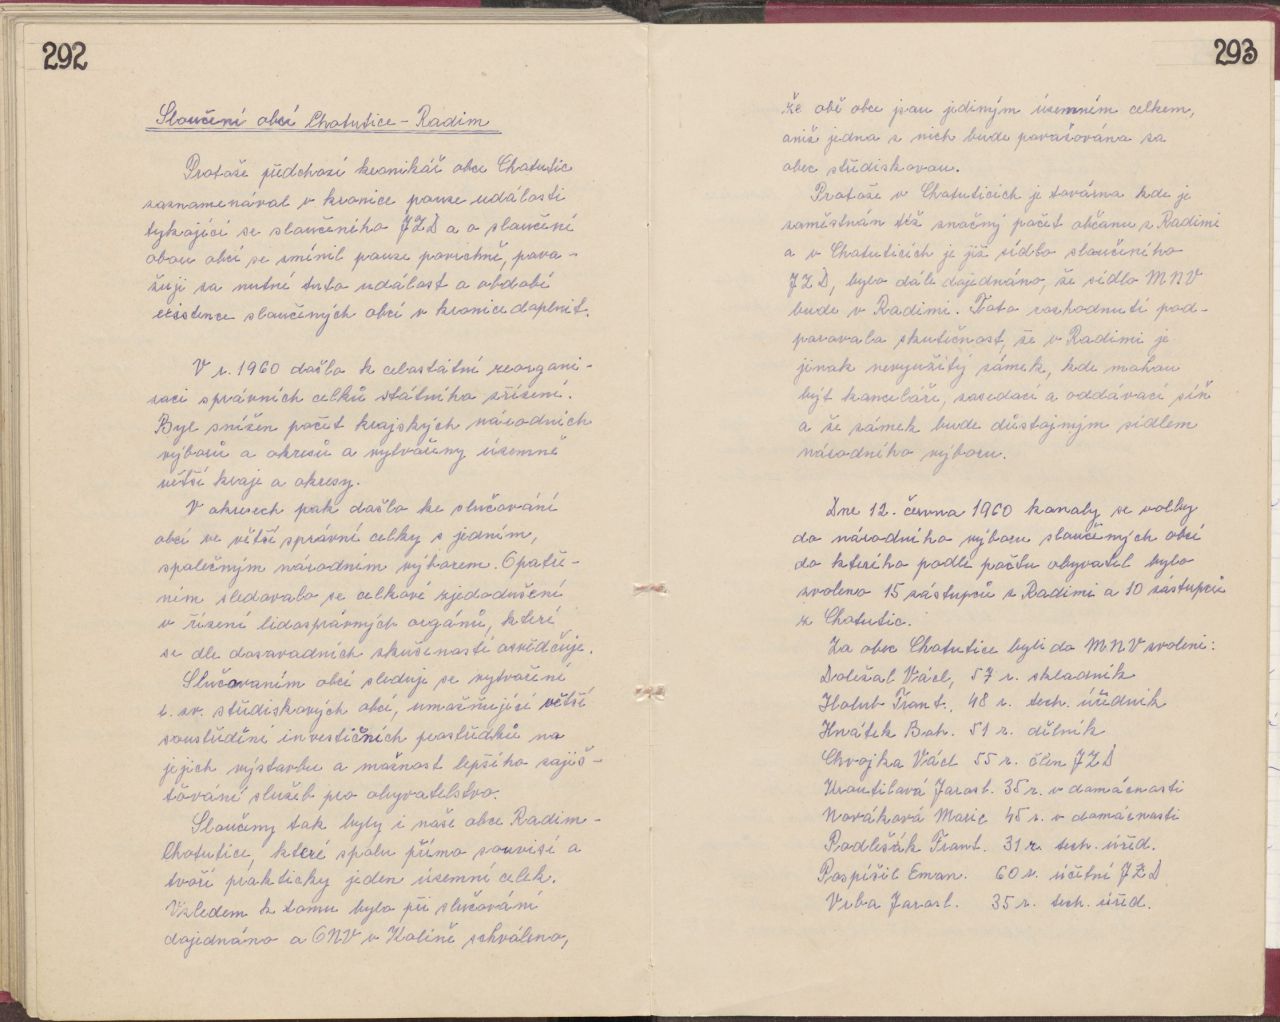 292
Sloučení obcí Chotutice - Radim
Protože předchozí kronikář obce Chotutic
zaznamenával v kronice pouze události
týkající se sloučeného JZD a o sloučení
obou obcí se zmínil pouze povrchně, pova-
žuji za nutné tuto událost a období
existence sloučených obcí v kronice doplnit.
V r. 1960 došlo k celostátní reorgani-
saci správních celků státního zřízení.
Byl snížen počet krajských národních
výborů a okresů a vytvořeny územně
větší kraje a okresy.
V okresech pak došlo ke slučování
obcí ve větší správní celky s jedním,
společným národním výborem. Opatře-
ním sledovalo se celkové zjednodušení
v řízení lidosprávných orgánů, které
se dle dosavadních zkušeností osvědčuje.
Slučovaním obcí sleduje se vytvoření
t. zv. střediskových obcí, umožňující větší
soustředění investičních prostředků na
jejich výstavbu a možnost lepšího zajiš-
ťování služeb pro obyvatelstvo.
Sloučeny tak byly i naše obce Radim -
Chotutice, které spolu přímo souvisí a
tvoří prakticky jeden územní celek.
Vzledem k tomu bylo při slučování
dojednáno a ONV v Kolíně schváleno,
293
že obě obce jsou jediným územním celkem,
aniž jedna z nich bude považována za
obec střediskovou.
Protože v Chotuticích je továrna kde je
zaměstnán též značný počet občanu z Radimi
a v Chotuticích je již sídlo sloučeného
JZD, bylo dále dojednáno, že sídlo MNV
bude v Radimi. Toto rozhodnutí pod-
porovala skutečnost, že v Radimi je
jinak nevyužitý zámek, kde mohou
být kanceláře, zasedací a oddávací síň
a že zámek bude důstojným sídlem
národního výboru.
Dne 12. června 1960 konaly se volby
do národního výboru sloučených obcí
do kterého podle počtu obyvatel bylo
zvoleno 15 zástupců z Radimi a 10 zástupců
z Chotutic.
Za obec Chotutice byli do MNV zvoleni:
Doležal Václ, 57 r. skladník
Holub Frant. 48 r. tech. úředník
Hnátek Boh. 51 r. dělník
Chvojka Václ 55 r. člen JZD
Kroutilová Jarosl. 35 r. v domácnosti
Nováková Marie 45 r. v domácnosti
Podlešák Frant. 31 r. tech. úřed.
Pospíšil Eman. 60 r. účetní JZD
Vrba Jarosl. 35 r. tech. úřed.